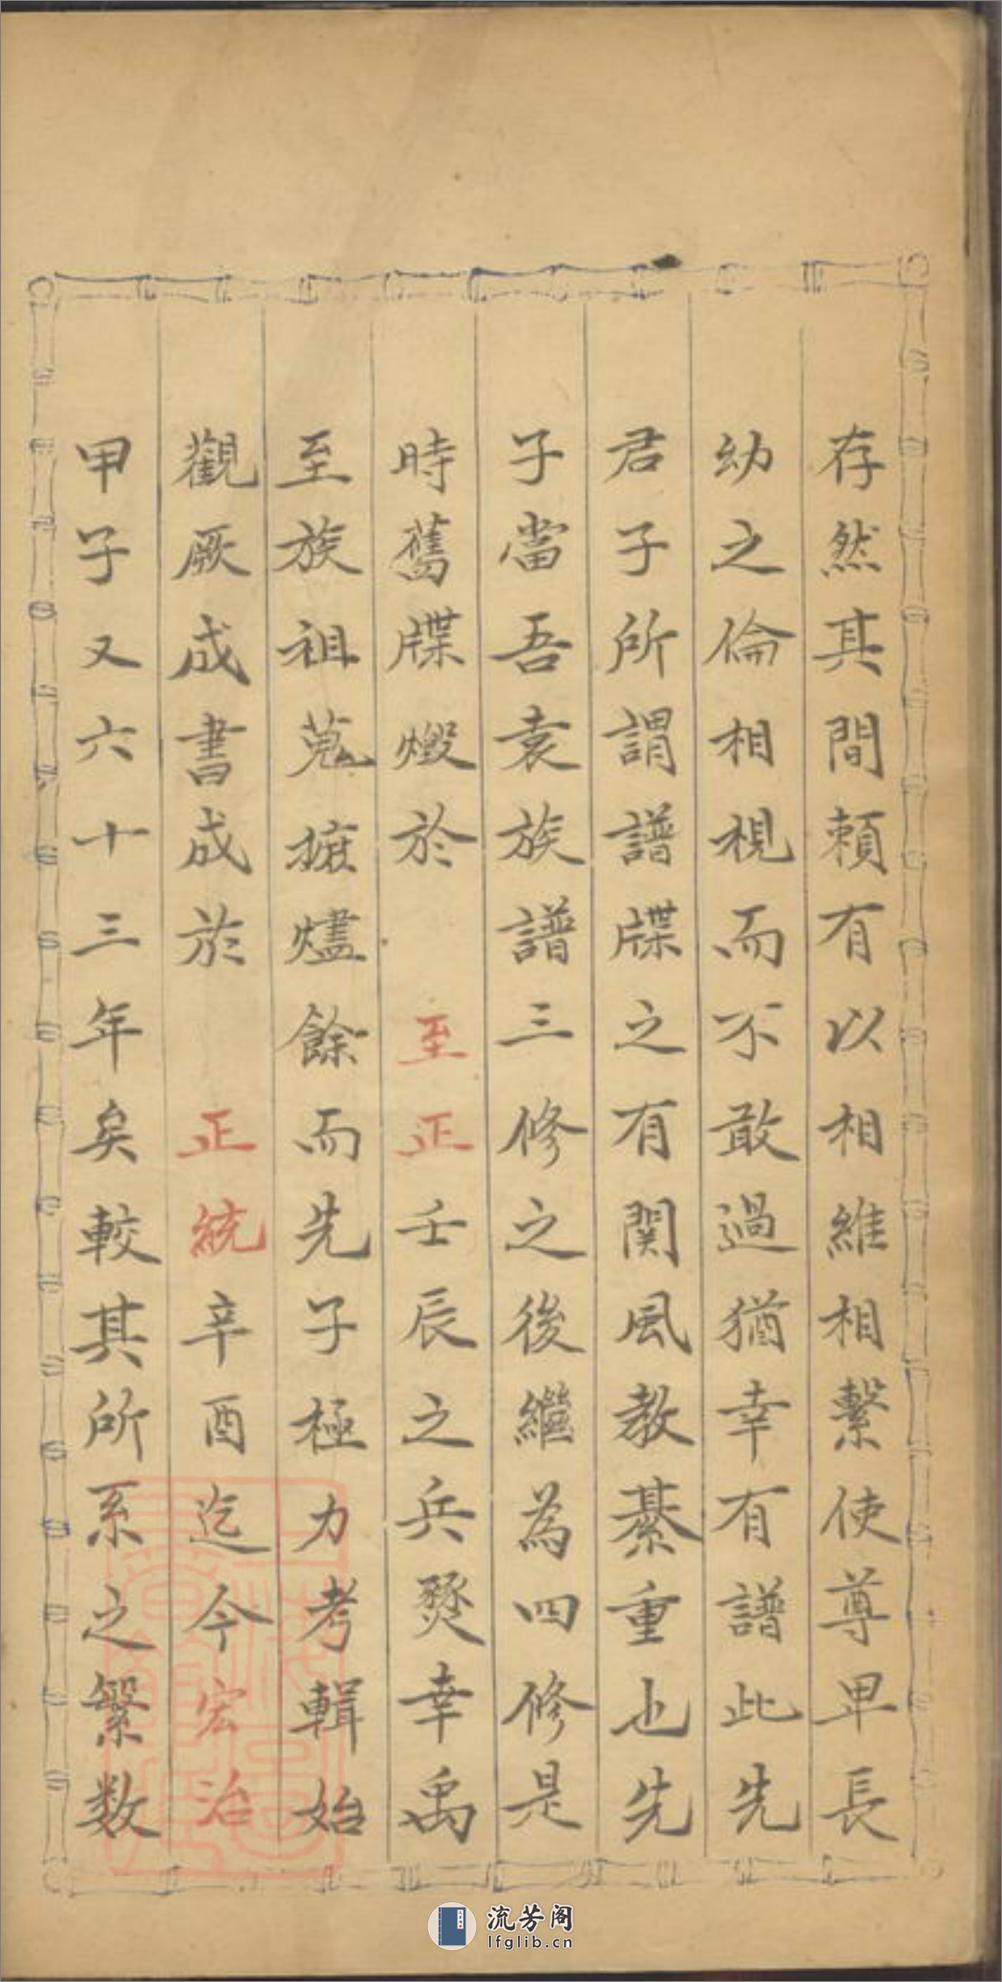 存然其間頼有以相維相繫使尊卑長
幼之倫相視而不敢過猶幸有譜此先
君子所謂譜牒之有関風教綦重也先
子當吾袁族譜三修之後繼為四修是
時舊牒燬於至正壬辰之兵燹幸禹
至族祖蒐摭燼餘而先子極力考輯始
觀厥成書成於正統辛酉迄今宏治
甲子又六十三年矣較其所系之繁数
流芳阁
lfglib.cn